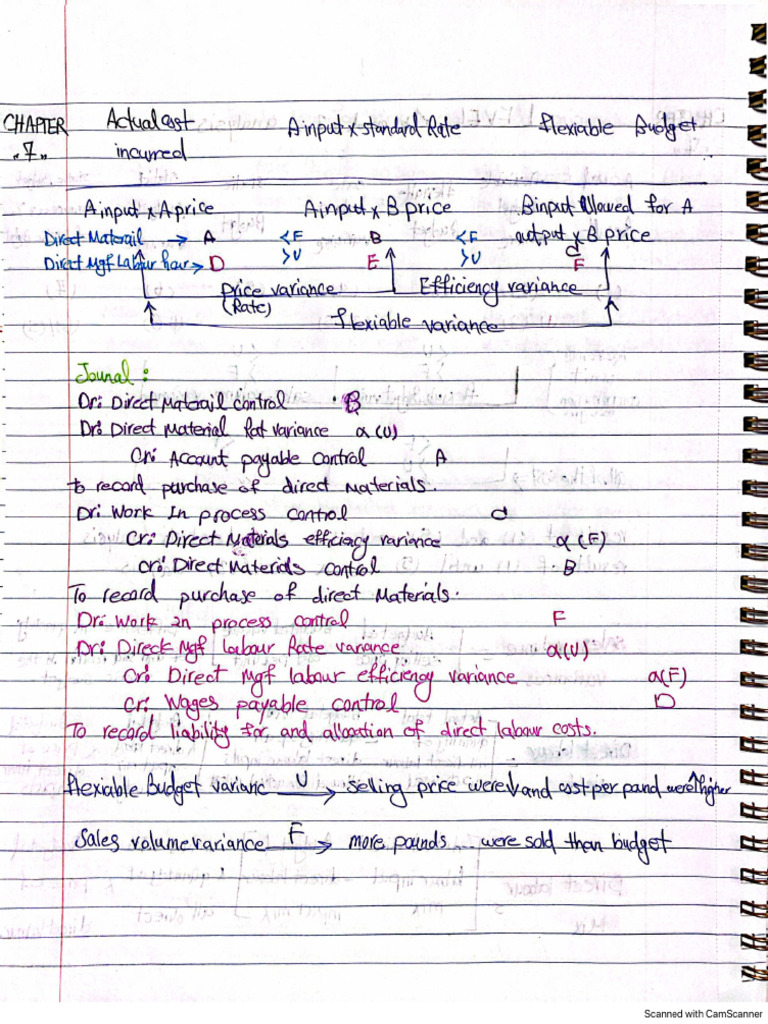 CHAPTER Actual cost A input x standard Rate flexiable Budget
"7" incurred
A input x A price A input x B price B input allowed for A
Direct Materail → A <F B <F output x B price
>U >U C
Direct Mgf Labour hour → D E F
Price variance Efficiency variance
(Rate)
flexiable variance
Jounal :
Dr: Direct Materail control B
Dr: Direct Material Rat variance α (U)
Cr: Account payable control A
to record purchase of direct materials.
Dr: Work In process control C
Cr: Direct Materials efficiency variance α (F)
Cr: Direct Materials control B
To record purchase of direct Materials.
Dr: Work In process control F
Dr: Direck Mgf Labour Rate variance α(U)
Cr: Direct Mgf labour efficiency variance α(F)
Cr: Wages payable control D
To record liability for and allocation of direct labour costs.
flexiable Budget varianc U → selling price were↓ and cost per pound were↑higher
Sales volume variance F → more pounds were sold than budget
Scanned with CamScanner